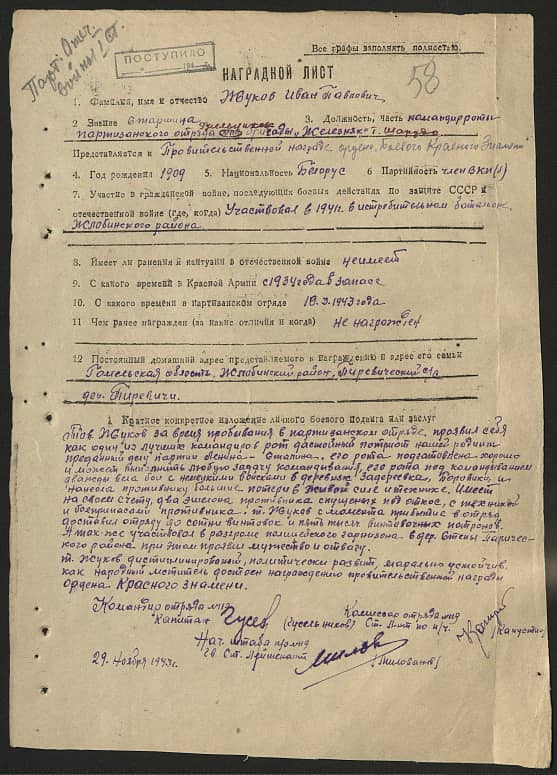 Парт. Отеч.
войны I ст.
ПОСТУПИЛО
Все графы заполнять полностью.
НАГРАДНОЙ ЛИСТ
58
1. Фамилия, имя и отчество Жуков Иван Павлович
2 Звание старшина 3. Должность, часть командир роты
партизанского отряда бригады "Железняк"
Представляется к Правительственной награде орден Боевого Красного Знамени
4. Год рождения 1909 5. Национальность Белорус 6 Партийность член ВКП(б)
7. Участие в гражданской войне, последующих боевых действиях по защите СССР и
отечественной войне (где, когда) Участвовал в 1941 г. в истребительном батальоне
Жлобинского района
8. Имеет ли ранения и контузии в отечественной войне не имеет
9. С какого времени в Красной Армии с 1934 года в запасе
10. С какого времени в партизанском отряде 1943 года
11 Чем ранее награжден (за какие отличия и когда) не награжден
12 Постоянный домашний адрес представляемого к награждению и адрес его семьи
Гомельская область, Жлобинский район, Пиревический с/с
дер. Пиревичи.
1 Краткое конкретное изложение личного боевого подвига или заслуг
Тов. Жуков за время пребывания в партизанском отряде проявил себя
как один из лучших командиров рот достойный патриот нашей родины
преданный делу партии Ленина - Сталина, его рота подготовлена хорошо
и может выполнить любую задачу командования, его рота под командованием
дважды вела бои с немецкими войсками в деревнях Задереевка, Боровики, и
нанесла противнику большие потери в живой силе и технике. Имеет
на своем счету, два эшелона противника спущеных под откос, с техникой
и боеприпасами противника. т. Жуков с момента прибытие в отряд
доставил отряду до сотни винтовок и пять тысяч винтовочных патронов.
А так-же участвовал в разгроме полицейского гарнизона в дер. Стены Паричес-
кого района при этом проявил мужество и отвагу.
т. Жуков дисциплинирован, политически развит, морально устойчив.
как народный мститель достоен награждению правительственной награды
ордена Красного знамени.
Командир отряда
Капитан Гусев (Гусельников)
Комиссар отряда
Ст. П-т по п/ч. (Капустин)
Нач. штаба
Гв. Ст. Лейтенант
29. Ноября 1943 г.